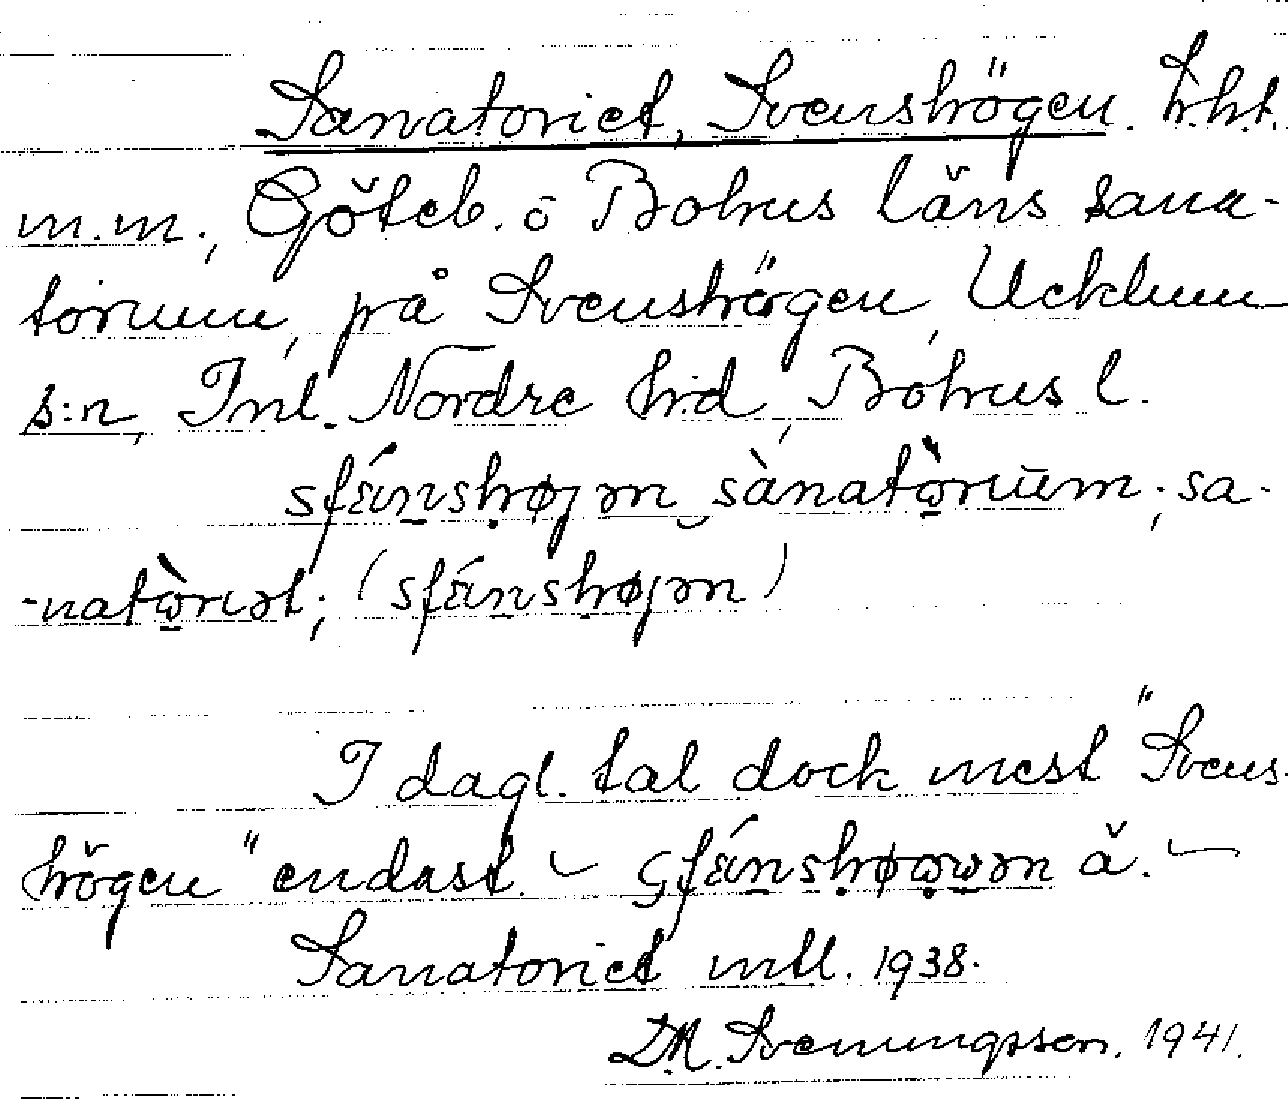 Sanatoriet, Svenshögen. h.h.t.
m.m., Göteb. o Bohus läns sana-
torium, på Svenshögen, Ucklum
s:n, Inl. Nordre h:d, Bohus l.
sfǽnshøjən sànatòrium; sa-
-natòriət; (sfǽnshøjən)
I dagl. tal dock mest "Svens-
högen" endast.
Sanatoriet intl. 1938.
D.M. Svenungsson. 1941.